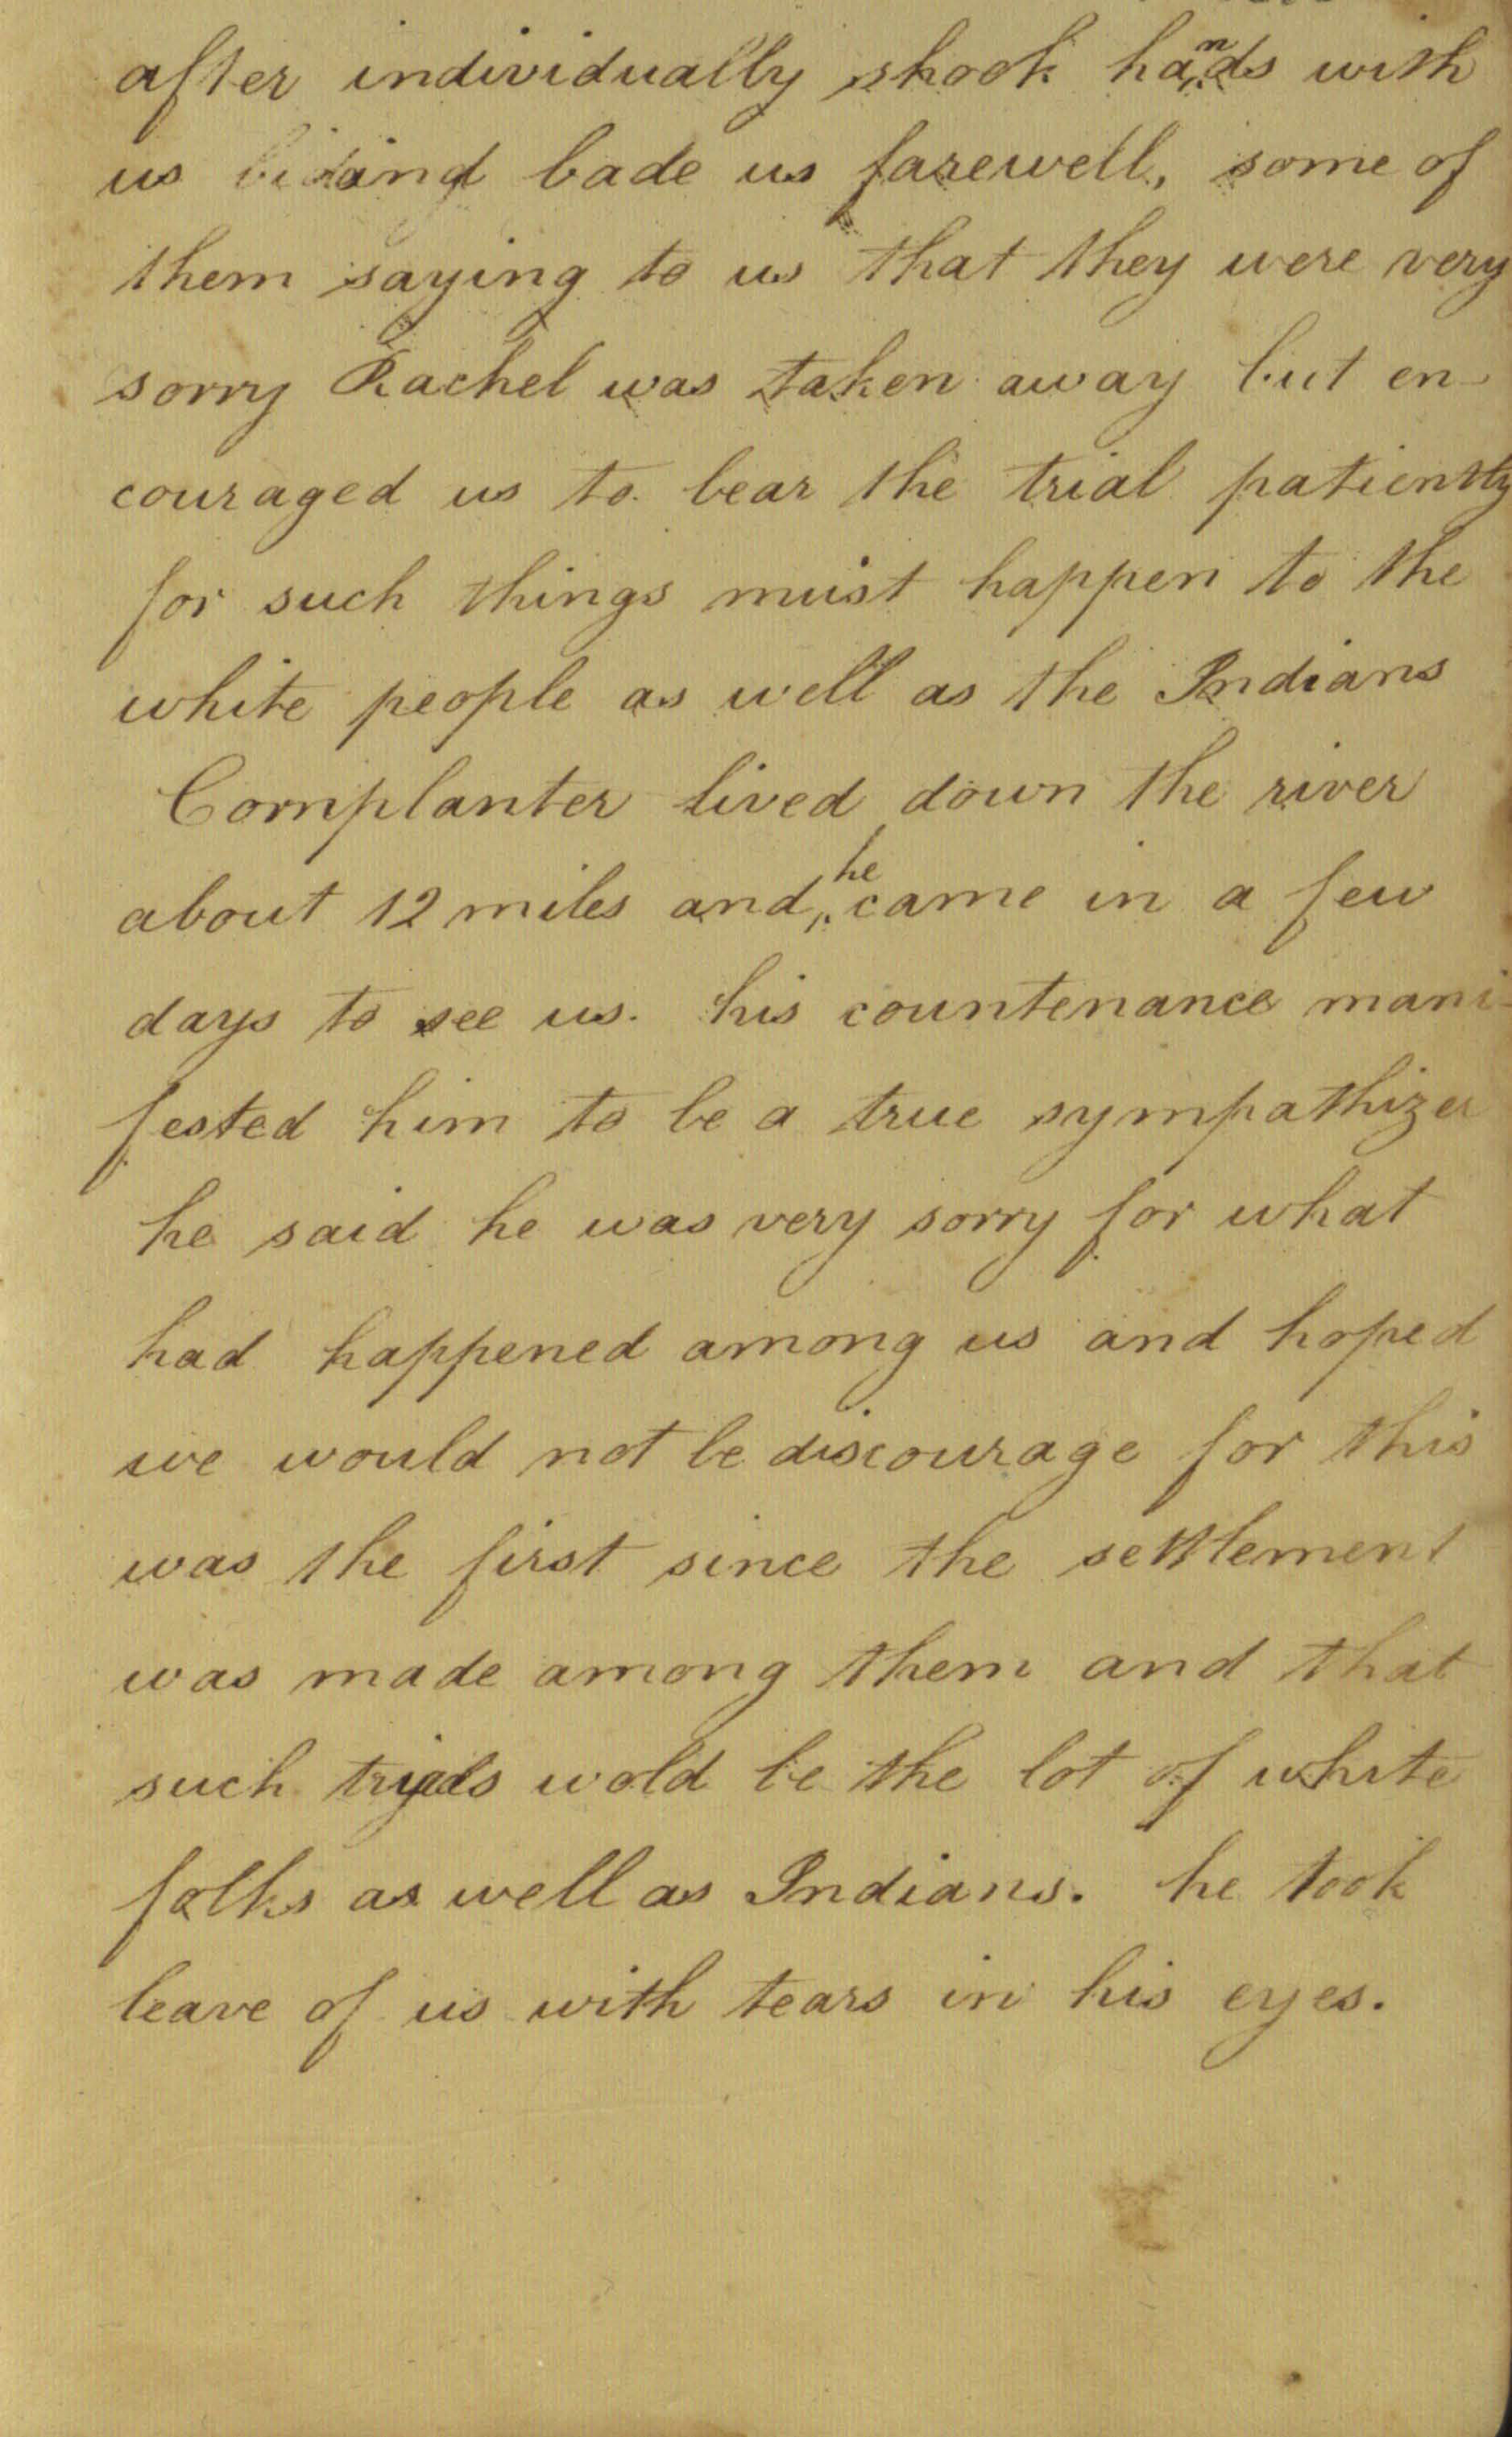 after individually shook hands with
us and bade us farewell, some of
them saying to us that they were very
sorry Rachel was taken away but en-
couraged us to bear the trial patiently
for such things must happen to the
white people as well as the Indians
Cornplanter lived down the river
about 12 miles and he came in a few
days to see us. his countenance mani-
fested him to be a true sympathizer
he said he was very sorry for what
had happened among us and hoped
we would not be discourage for this
was the first since the settlement
was made among them and that
such trials wold be the lot of white
folks as well as Indians. he took
leave of us with tears in his eyes.